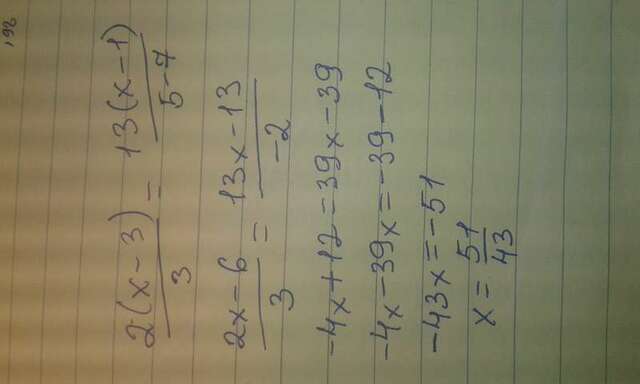 192
2(x-3)/3 = 13(x-1)/5-7
2x-6/3 = 13x-13/-2
-4x+12=39x-39
-4x-39x=-39-12
-43x=-51
x=51/43